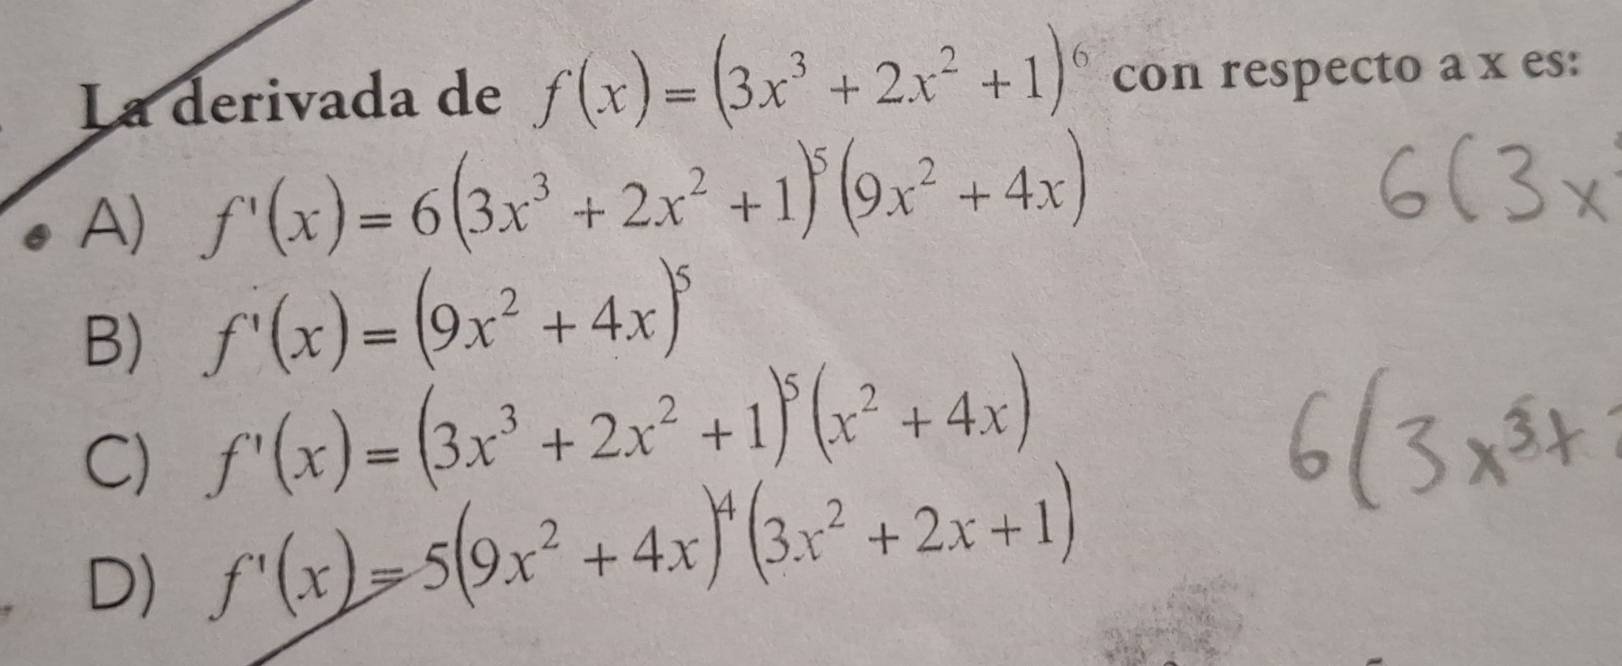 La derivada de f(x) = (3x³ + 2x² + 1)⁶ con respecto a x es:
A) f'(x) = 6(3x³ + 2x² + 1)⁵(9x² + 4x)
6(3x
B) f'(x) = (9x² + 4x)⁵
C) f'(x) = (3x³ + 2x² + 1)⁵(x² + 4x)
6(3x³+
D) f'(x) = 5(9x² + 4x)⁴(3x² + 2x + 1)